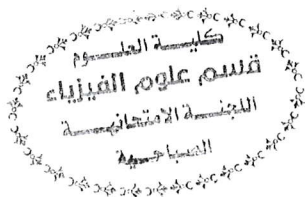 كلية العلوم
قسم علوم الفيزياء
اللجنة الامتحانية
الصباحية